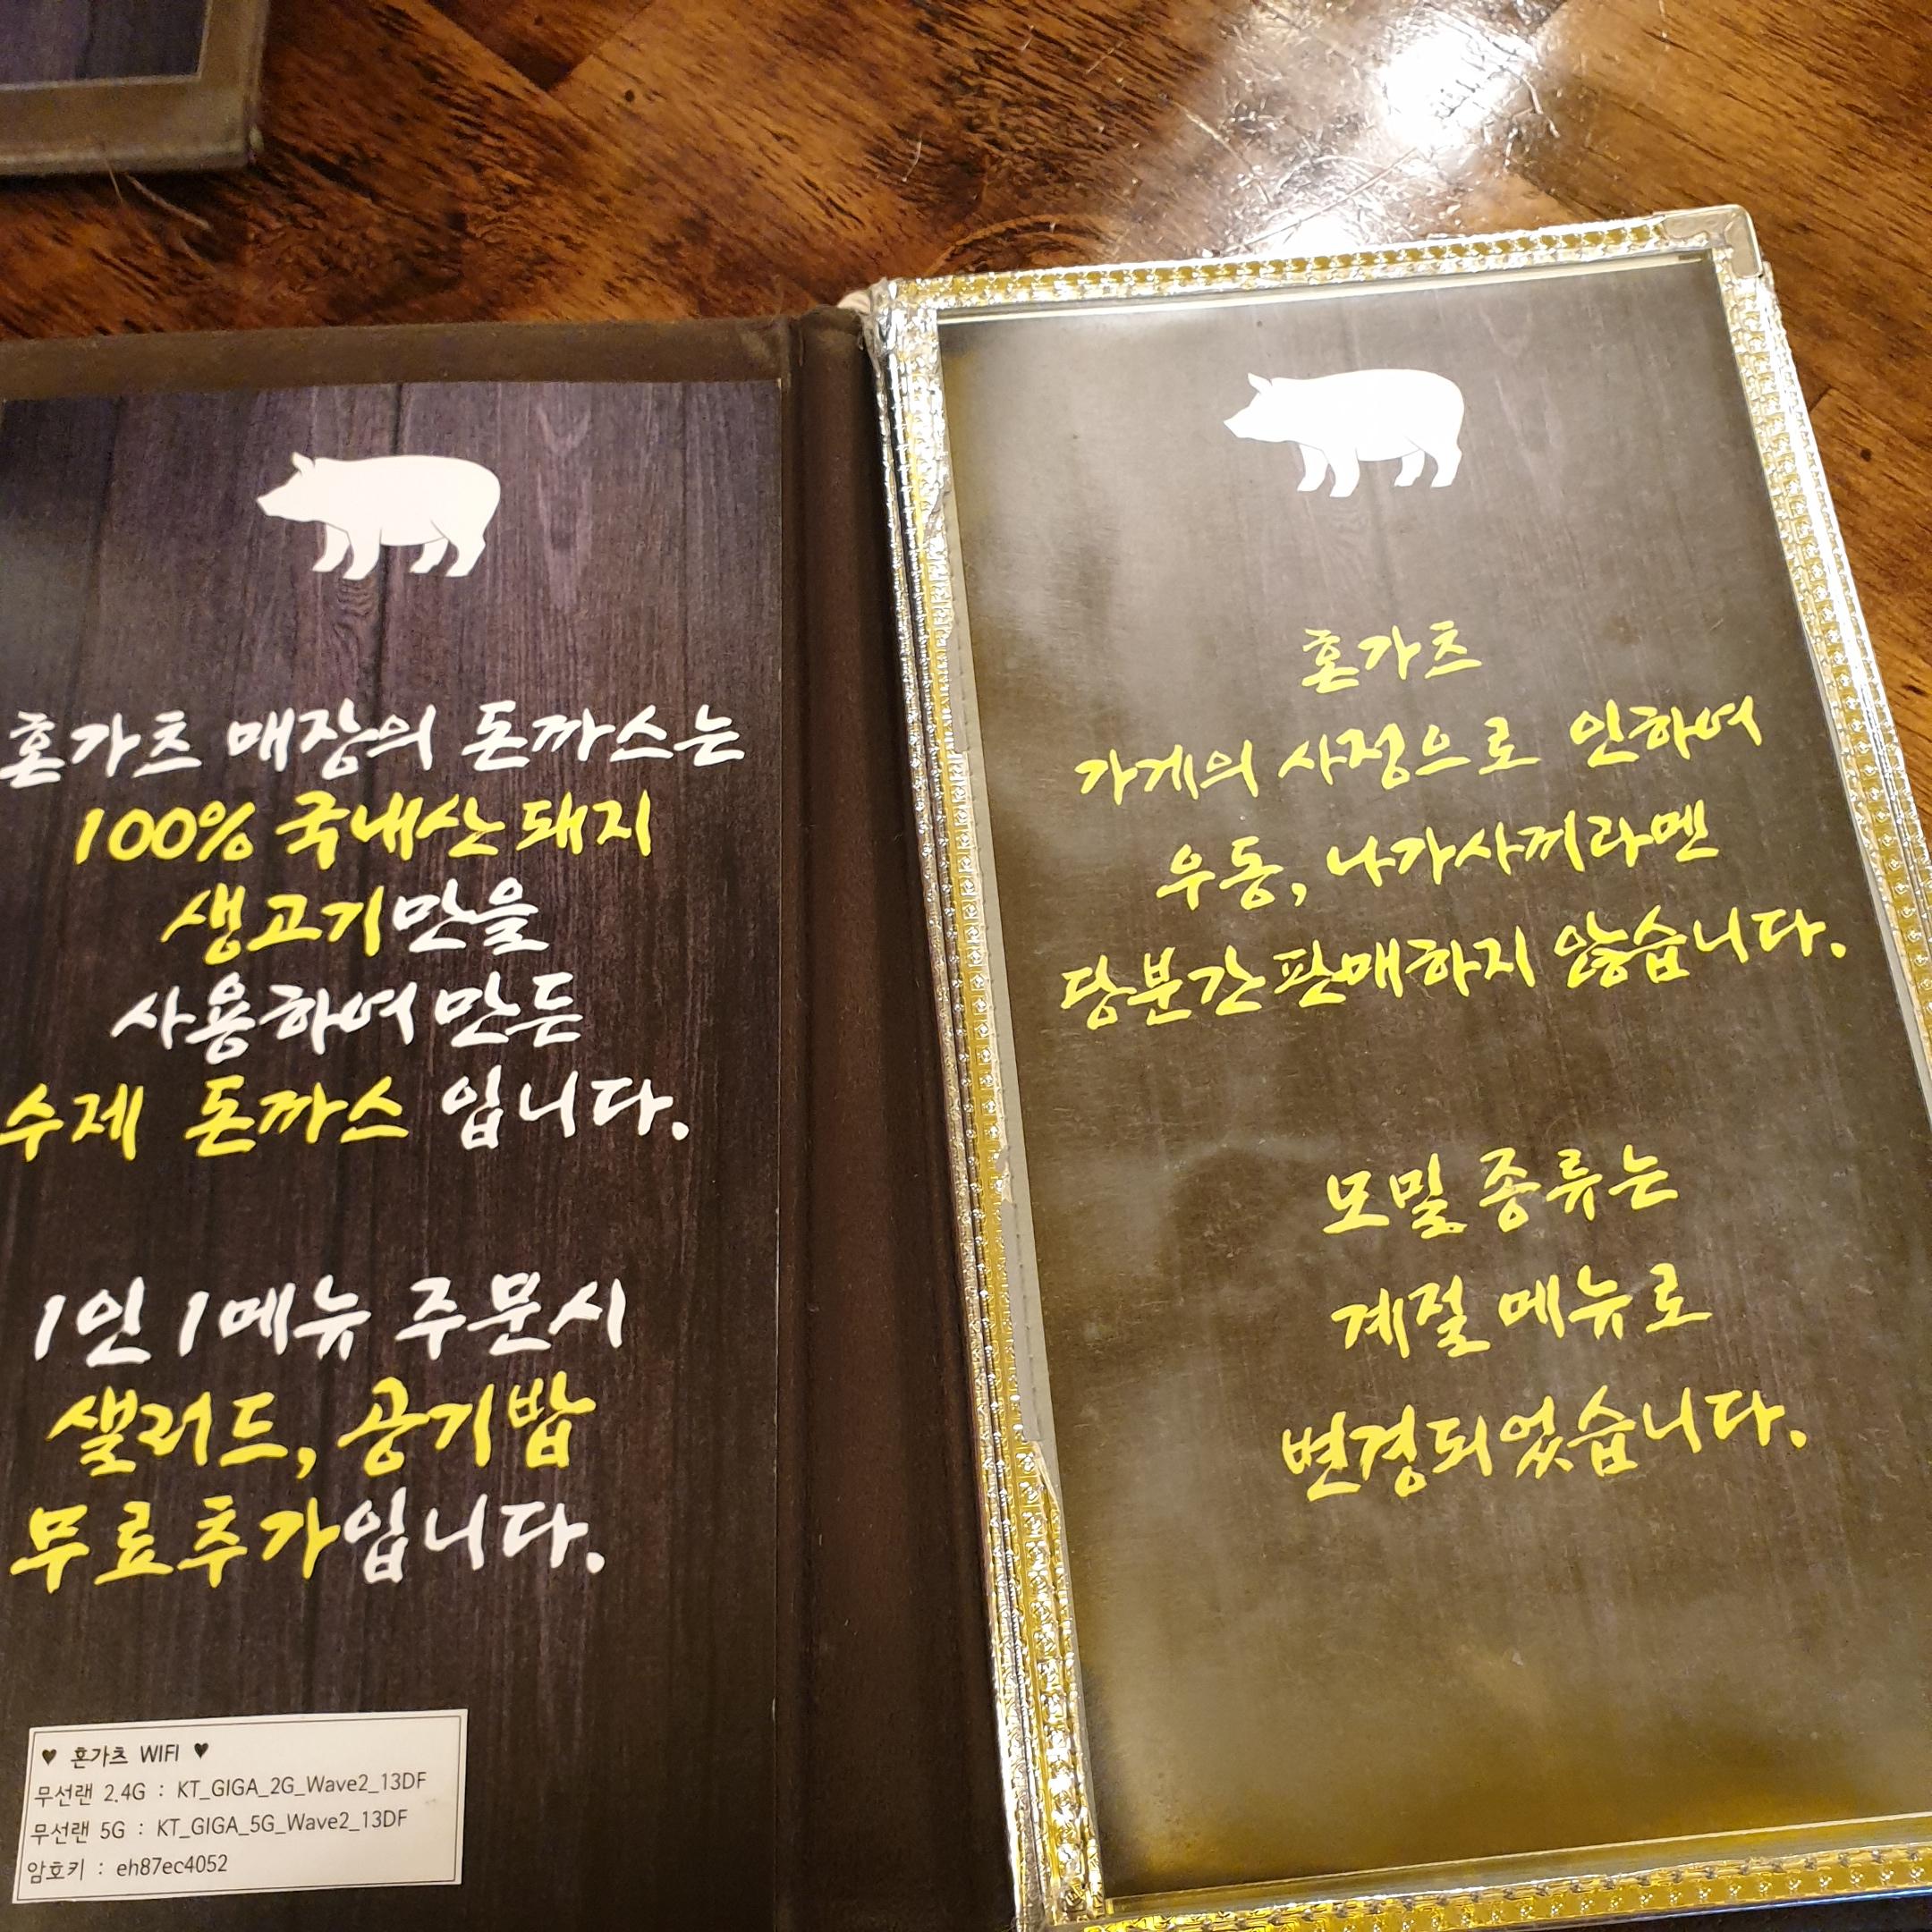 혼가츠 매장의 돈까스는
100% 국내산 돼지
생고기만을
사용하여 만든
수제 돈까스 입니다.
1인 1메뉴 주문시
샐러드, 공기밥
무료추가입니다.
♥ 혼가츠 WIFI ♥
무선랜 2.4G : KT_GIGA_2G_Wave2_13DF
무선랜 5G : KT_GIGA_5G_Wave2_13DF
암호키 : eh87ec4052
혼가츠
가게의 사정으로 인하여
우동, 나가사끼라멘
당분간 판매하지 않습니다.
모밀 종류는
계절 메뉴로
변경되었습니다.